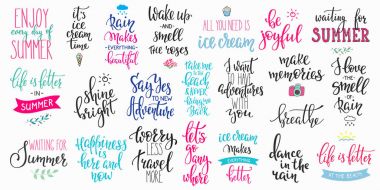 ENJOY
every day of
SUMMER
it's
ice
cream
time
Rain
Makes
EVERYTHING
beautiful
wake up
and
smell
the roses
ALL YOU NEED IS
ice cream
be
joyful
waiting for
SUMMER
life is better
IN
SUMMER
shine
bright
Say Yes
TO NEW
Adventure
take me
Back
to the
want
to have
Adventures
with you
make
memories
breathe
I love
the
Smell of
Rain
WAITING FOR
Summer
Happiness
is
here and
now
worry
less
travel
MORE
let's
go
any
where
ice cream
Makes
EVERYTHING
better
dance
in the
rain
life is better
AT THE BEACH